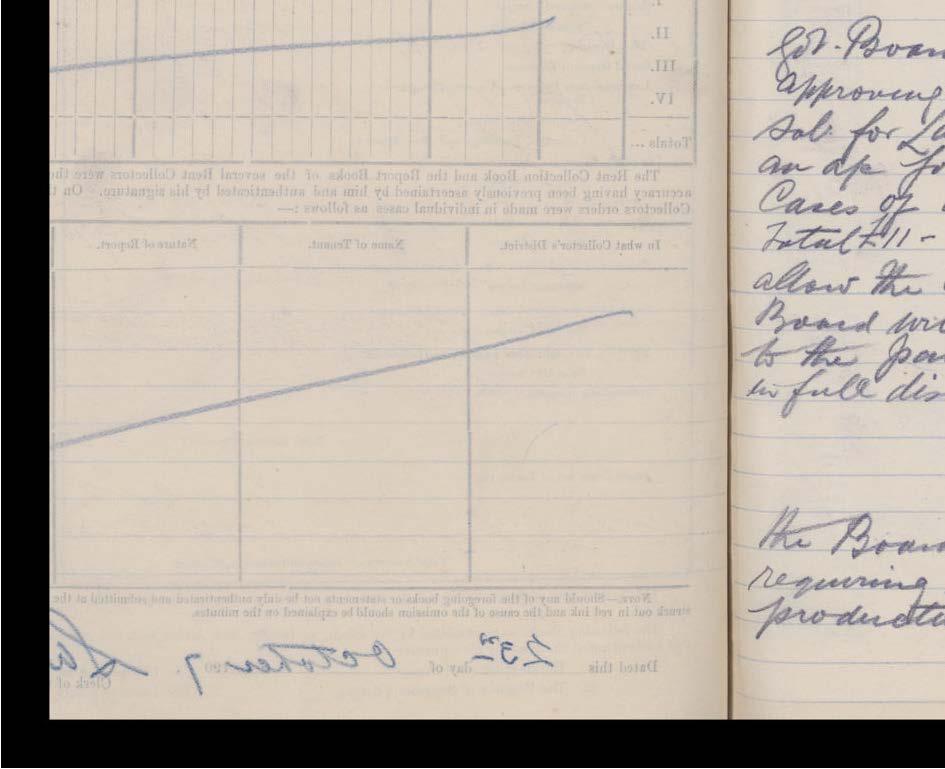 I.
II.
III.
IV.
Totals ...
The Rent Collection Book and the Report Books of the several Rent Collectors were
accuracy having been previously ascertained by him and authenticated by his signature. On
Collectors orders were made in individual cases as follows :—
In what Collector's District. Name of Tenant. Nature of Report.
NOTE.—Should any of the foregoing books or statements not be duly authenticated and submitted at the
struck out in red ink and the cause of the omission should be explained on the minutes.
Dated this 23rd day of October 1907
Clerk of
Approving
for
an
Cases of
Total £11 -
allow the
Board
to the
in full
the
requiring